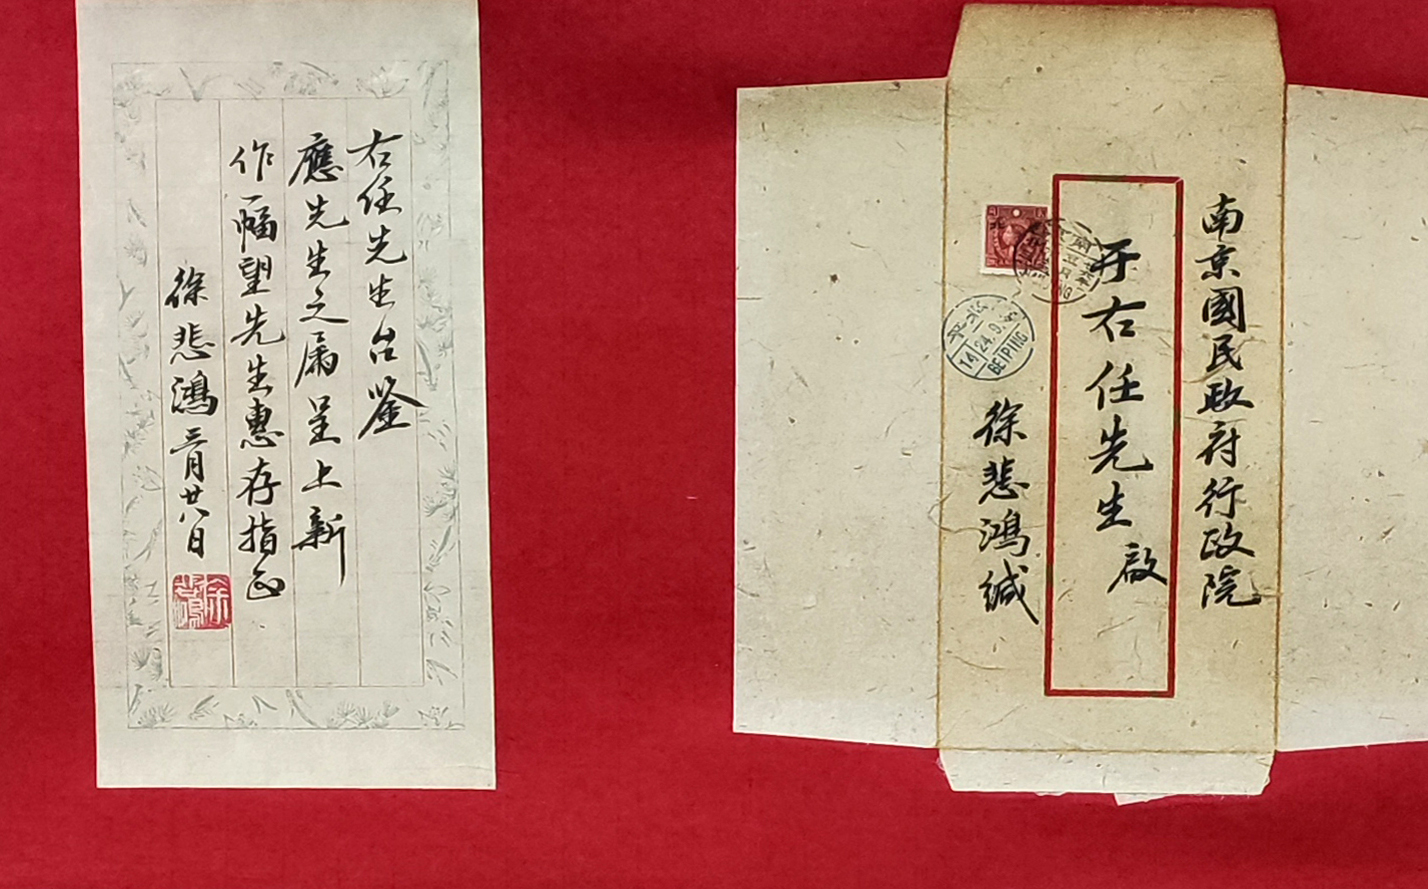 右任先生台鉴
應先生之属呈上新
作一幅望先生惠存指正
徐悲鴻 三月廿八日
南京國民政府行政院
于右任先生 啟
徐悲鴻缄
14 24.9
BEIPING